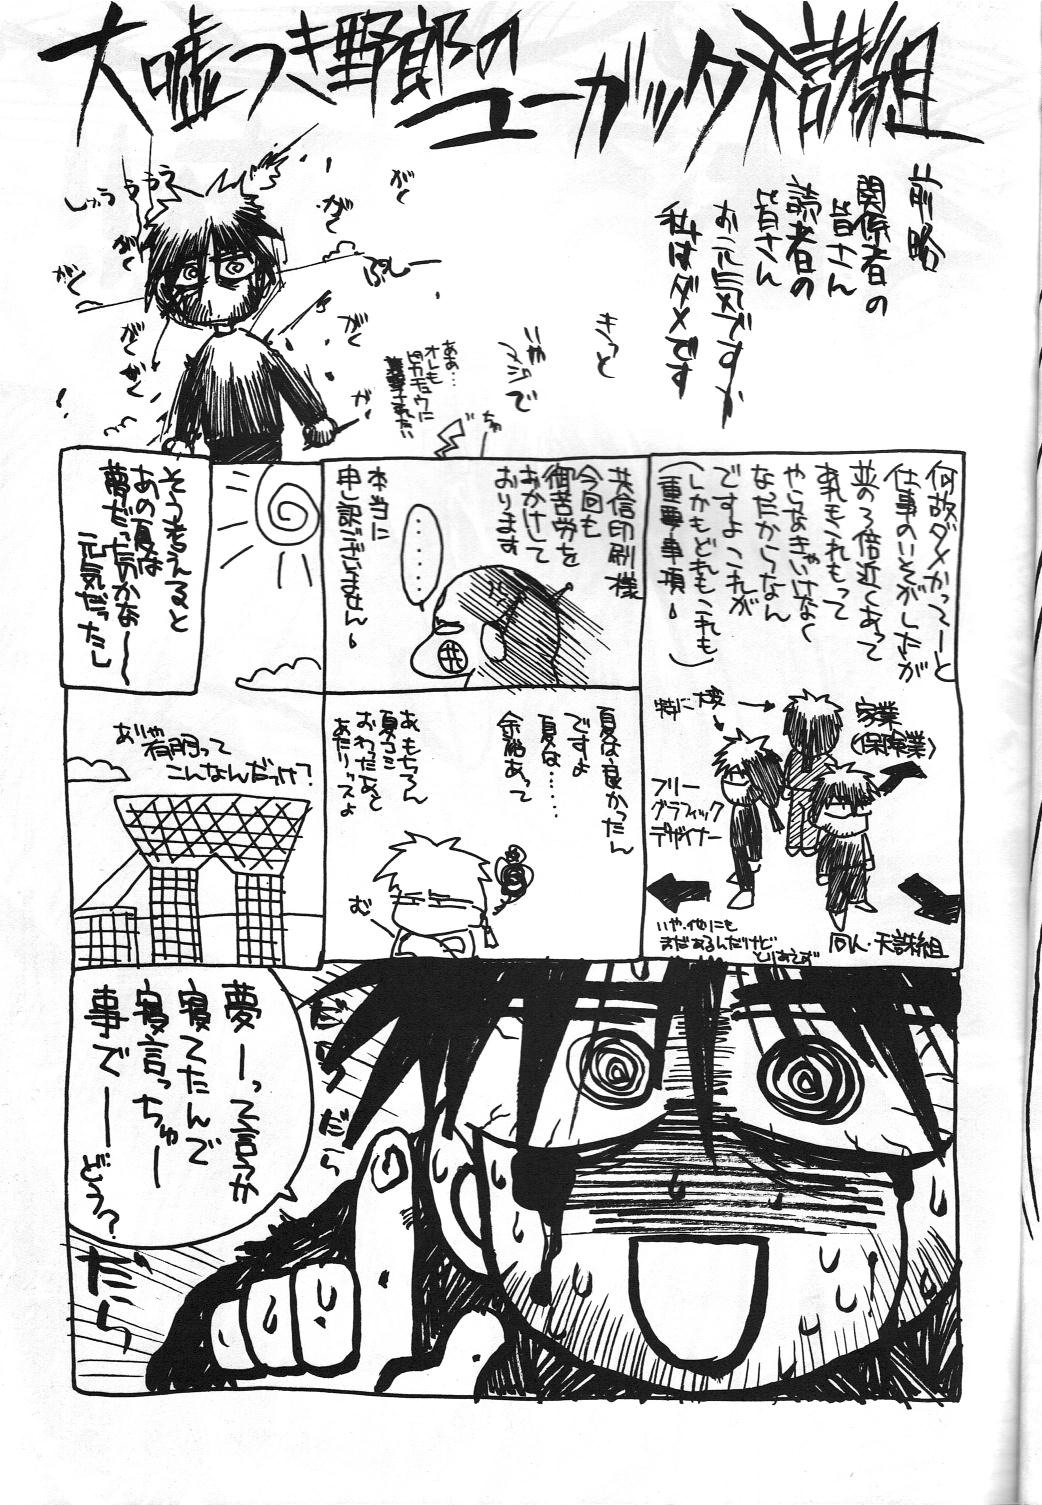 大嘘つき野郎の
ユーガッタ天誅組
前略
関係者の
皆さん
読者の
皆さん
お元気ですか
私はダメです
きっと
いや
マジで
ああ…
オレも
ピカチュウに
ぢゅ
ぷしー
しゅうううう
がく
がく
がく
がく
がく
がく
が
何故ダメかってーと
仕事のいそがしさが
並の3倍近くあって
あれもこれもって
やらなきゃいけなく
なったからなん
ですよこれが
(しかもどれもこれも
重要事項!)
特に大変
家業
(保険業)
フリー
グラフィック
デザイナー
同人・天誅組
いや、他にも
まだあるんだけど
とりあえず
共信印刷様
今回も
御苦労を
おかけして
おります
本当に
申し訳ございません!
……
夏は良かったん
ですよ
夏は……
余裕あって
あ もちろん
夏コミ
おわったあと
あたりっスよ
む
そう考えると
あの夏は
夢だったのかな〜
元気だったし
ありゃ
有明って
こんなんだっけ?
夢ーって言うか
寝てたんで
寝言っちゅー
事でー
どう?
だらだら
だら